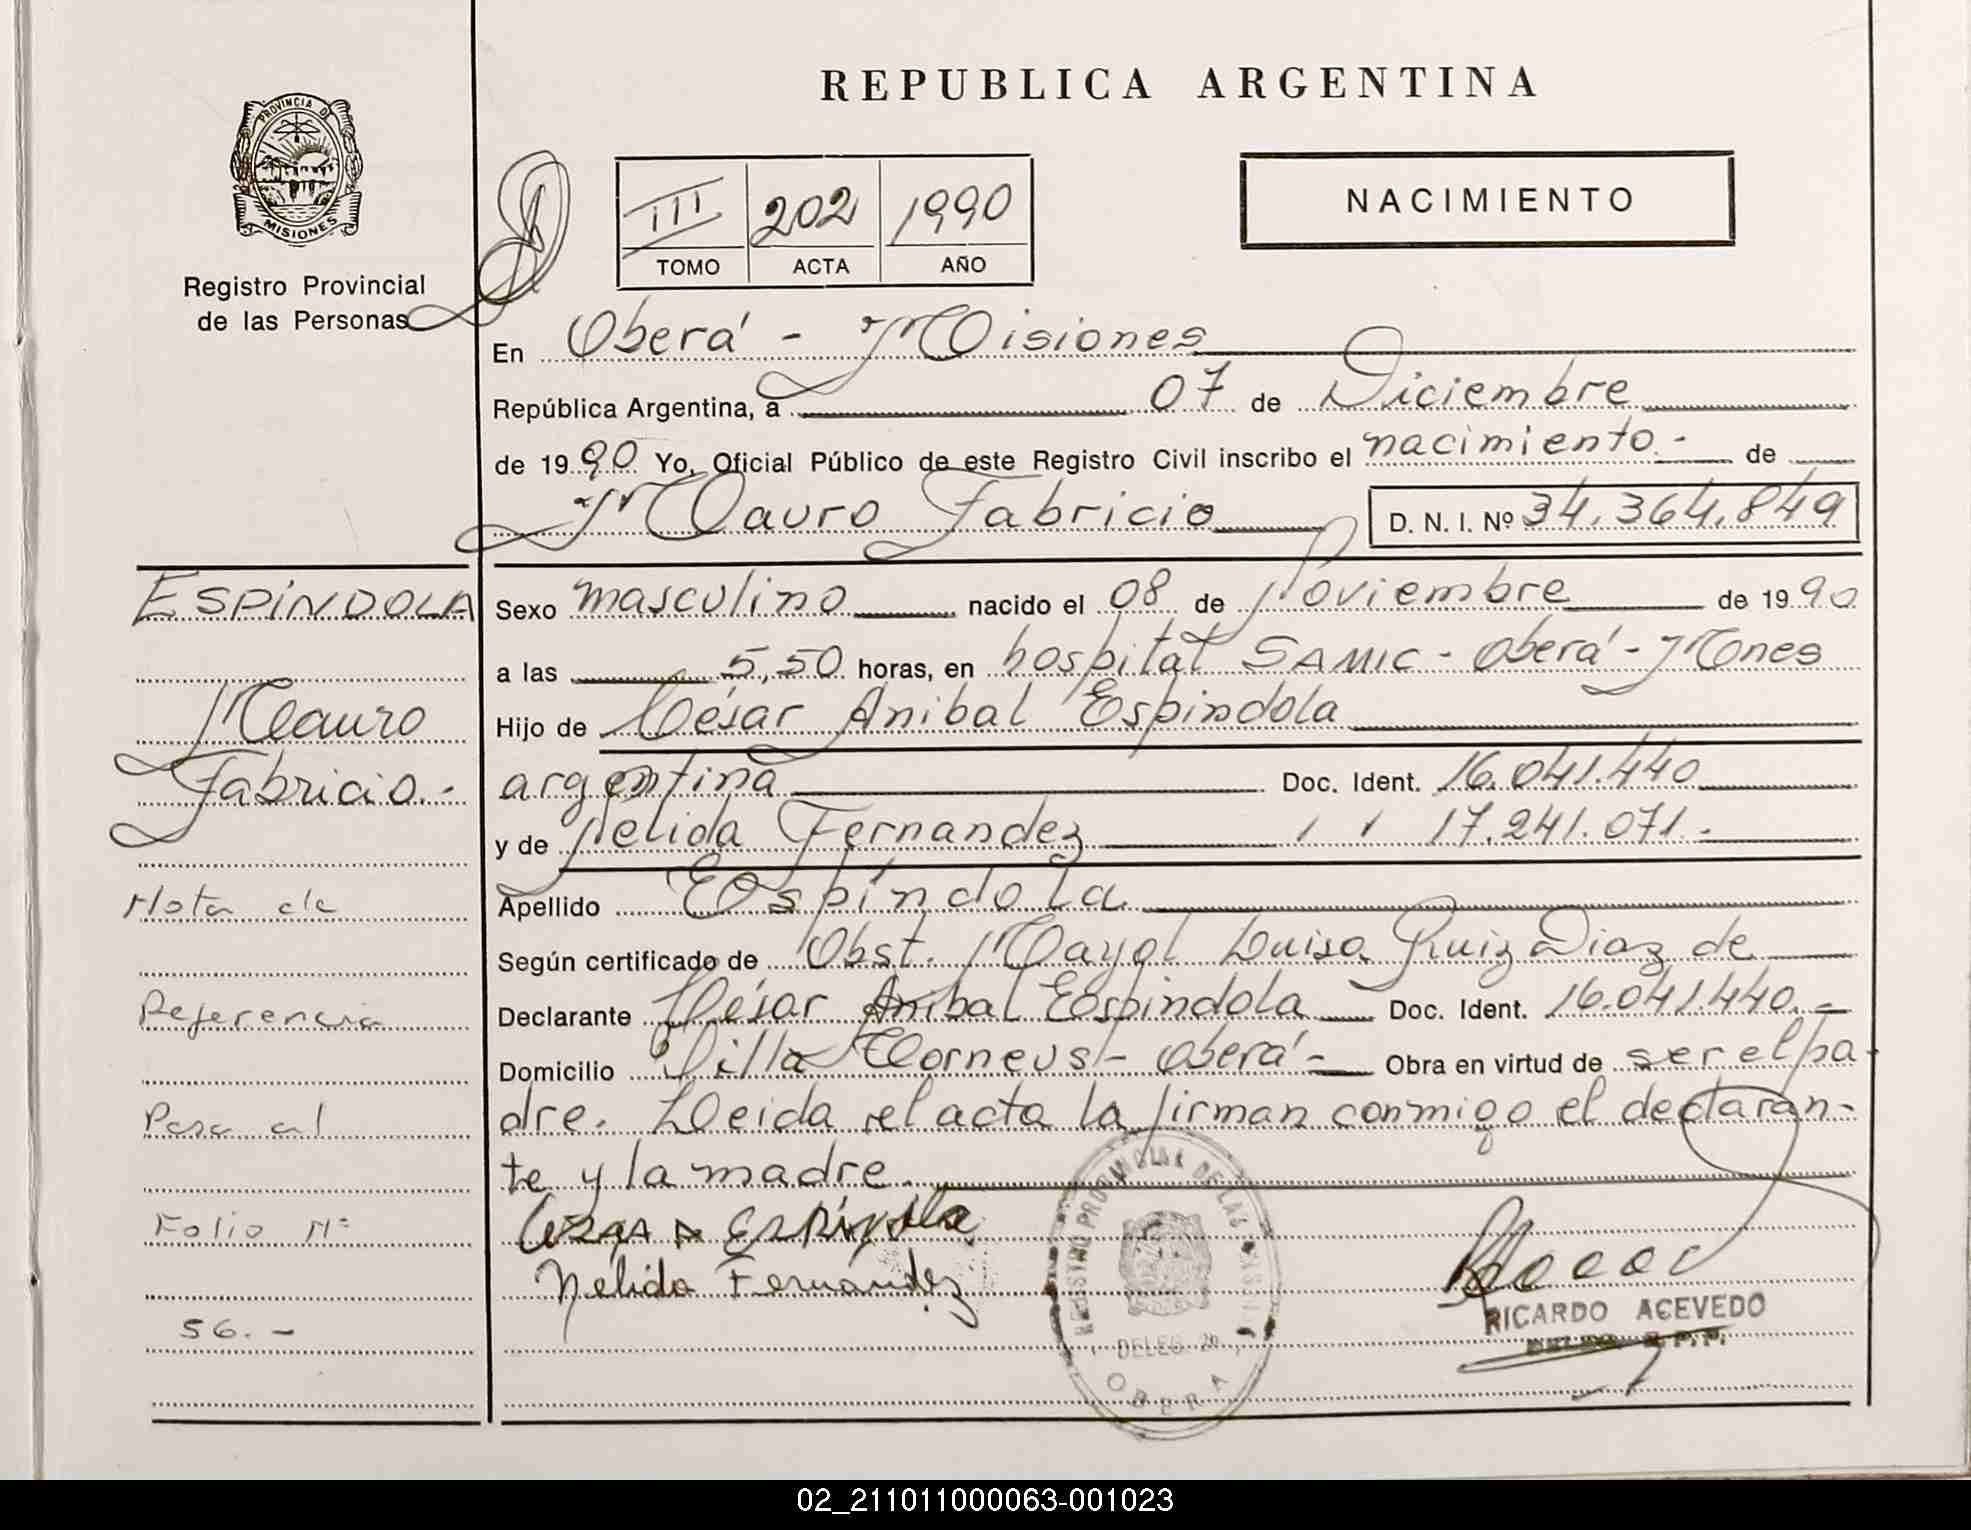 REPUBLICA ARGENTINA
PROVINCIA DE
MISIONES
Registro Provincial
de las Personas
III 202 1990
TOMO ACTA AÑO
NACIMIENTO
En Oberá - Misiones
República Argentina, a 07 de Diciembre
de 1990 Yo, Oficial Público de este Registro Civil inscribo el nacimiento.- de
Mauro Fabricio D. N. I. Nº 34.364.849
ESPÍNDOLA
Mauro
Fabricio.-
Nota de
Referencia
Pasa al
Folio Nº
56.-
Sexo masculino nacido el 08 de Noviembre de 1990
a las 5,50 horas, en hospital SAMIC - Oberá - Mones
Hijo de César Anibal Espíndola
argentina Doc. Ident. 16.041.440
y de Nelida Fernandez " " 17.241.071.-
Apellido Espíndola
Según certificado de Obst. Mayol Luisa Ruiz Diaz de
Declarante César Anibal Espíndola Doc. Ident. 16.041.440.-
Domicilio Villa Corneus - Oberá - Obra en virtud de ser el pa-
dre. Leida el acta la firman conmigo el declaran-
te y la madre.
CESAR A ESPÍNDOLA
Nelida Fernández
REGISTRO PROVINCIAL DE LAS
DELEG. 20
OBERA
RICARDO ACEVEDO
02_211011000063-001023